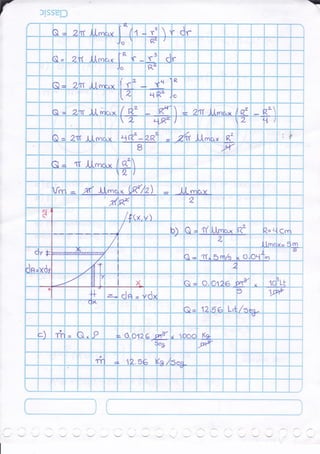 Classic
Q = 2π Umax ∫₀ᴿ (1 - r²/R²) r dr
Q = 2π Umax ∫₀ᴿ r - r³/R² dr
Q = 2π Umax [r²/2 - r⁴/4R²]₀ᴿ
Q = 2π Umax (R²/2 - R⁴/4R²) = 2π Umax (R²/2 - R²/4)
Q = 2π Umax (4R² - 2R²)/8 = 2π Umax R²/4
Q = π Umax (R²/2)
Vm = π Umax (R²/2)/πR² = Umax/2
f(x,y)
b) Q = π Umax R²/2 R=4cm
Umax=5m/s
Q = π·5m/s × 0.04²m/2
dA=xdr
dx
= dA = ydx
Q = 0.0126 m³/s × 10³Lt/1m³
Q = 12.56 Lit/seg
c) ṁ = Q·ρ = 0.0126 m³/seg × 1000 Kg/m³
ṁ = 12.56 Kg/seg